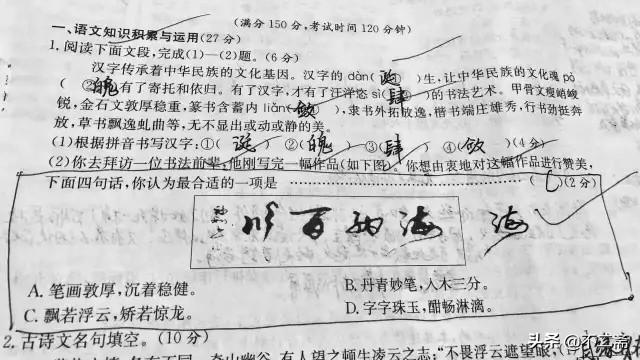 (满分 150 分,考试时间 120 分钟)
一、语文知识积累与运用(27 分)
1. 阅读下面文段,完成(1)—(2)题。(6 分)
汉字传承着中华民族的文化基因。汉字的 dàn(诞)生,让中华民族的文化魂 pò
( ②魄 )有了寄托和依归。有了汉字,才有了汪洋恣 sì(肆)的书法艺术。甲骨文瘦峭峻
锐,金石文敦厚稳重,篆书含蓄内 liǎn(敛),隶书外拓放逸,楷书端庄雄秀,行书劲挺奔
放,草书飘逸虬曲等,无不显出或动或静的美。
(1)根据拼音书写汉字:①( 诞 ) ②(魄) ③(肆) ④(敛)(4 分)
(2)你去拜访一位书法前辈,他刚写完一幅作品(如下图)。你想由衷地对这幅作品进行赞美,
下面四句话,你认为最合适的一项是 ………………( C )(2 分)
川百纳海 海
A. 笔画敦厚,沉着稳健。 B. 丹青妙笔,入木三分。
C. 飘若浮云,矫若惊龙。 D. 字字珠玉,酣畅淋漓。
2. 古诗文名句填空。(10 分)
有人望之顿生凌云之志:“不畏浮云遮望眼,
头条